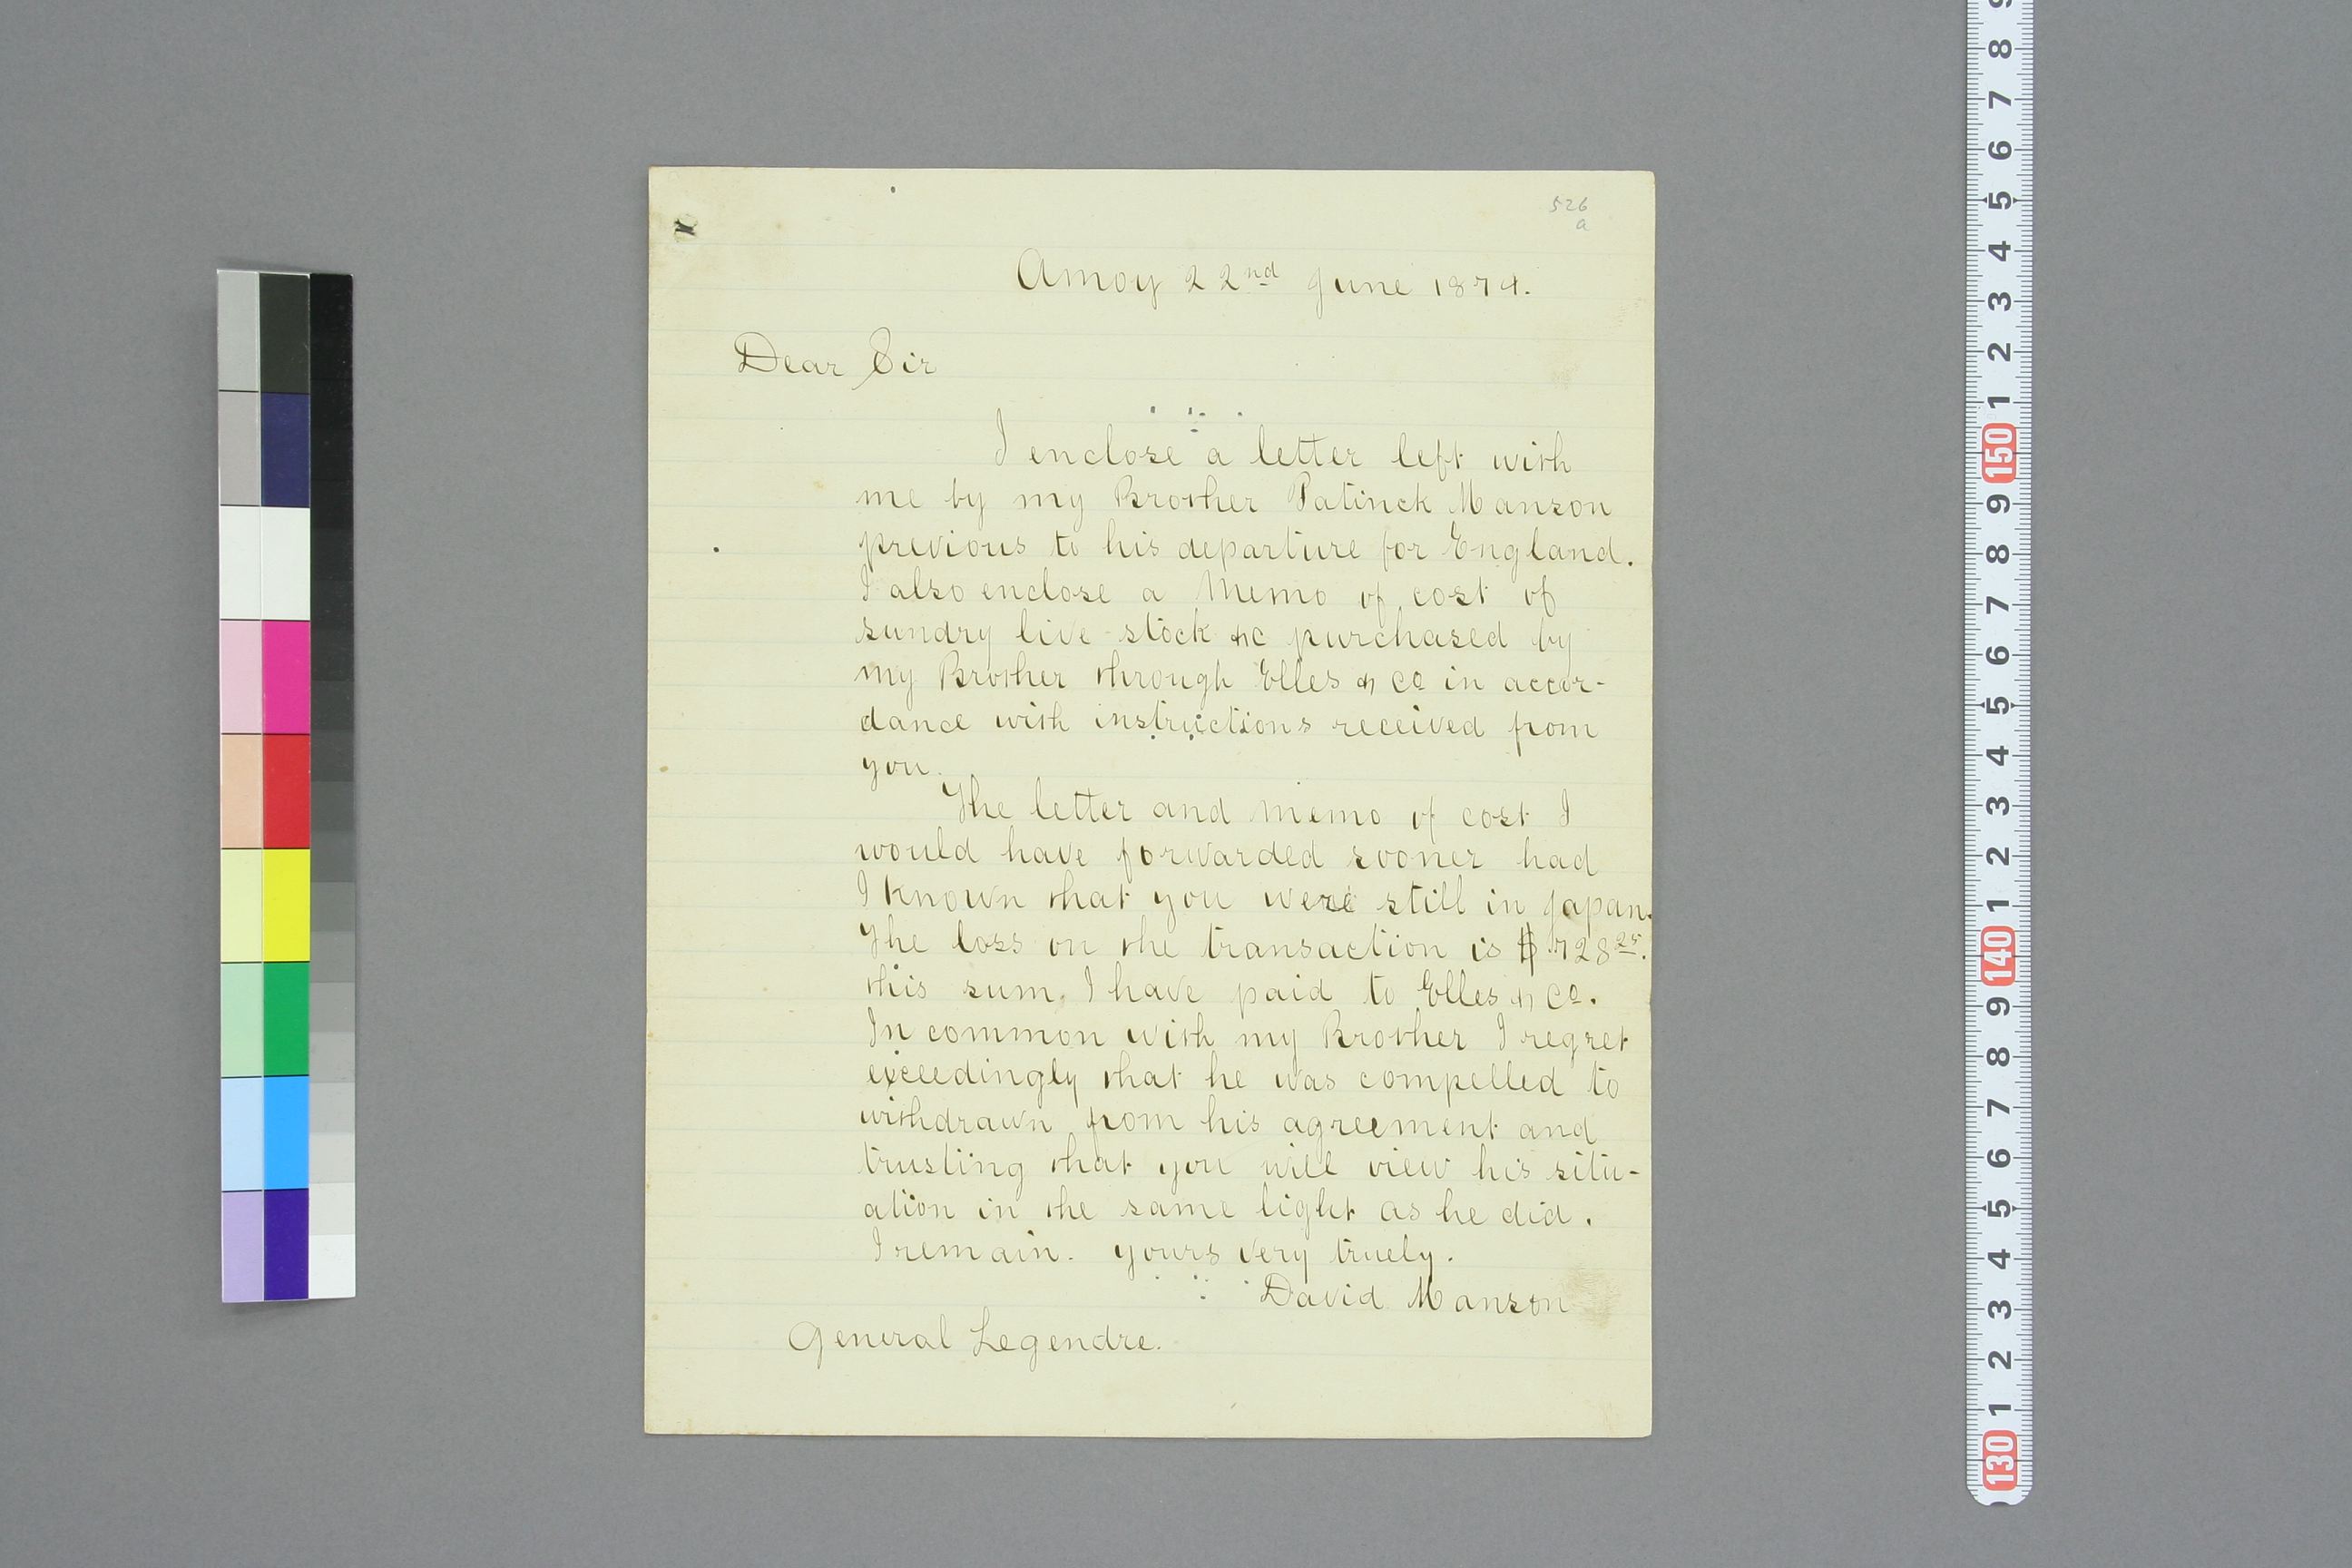 526
a
Amoy 22nd June 1874.
Dear Sir
I enclose a letter left with
me by my Brother Patinck Manson
previous to his departure for England.
I also enclose a Memo of cost of
sundry live-stock &c purchased by
my Brother through Elles & Co in accor-
dance with instructions received from
you.
The letter and memo of cost I
would have forwarded sooner had
I known that you were still in Japan.
The loss on the transaction is $728 25.
this sum, I have paid to Elles & Co.
In common with my Brother I regret
exceedingly that he was compelled to
withdrawn from his agreement and
trusting that you will view his situ-
ation in the same light as he did.
I remain. yours very truely.
David Manson
General Legendre.
9
8
7
6
5
4
3
2
1
150
9
8
7
6
5
4
3
2
1
140
9
8
7
6
5
4
3
2
1
130